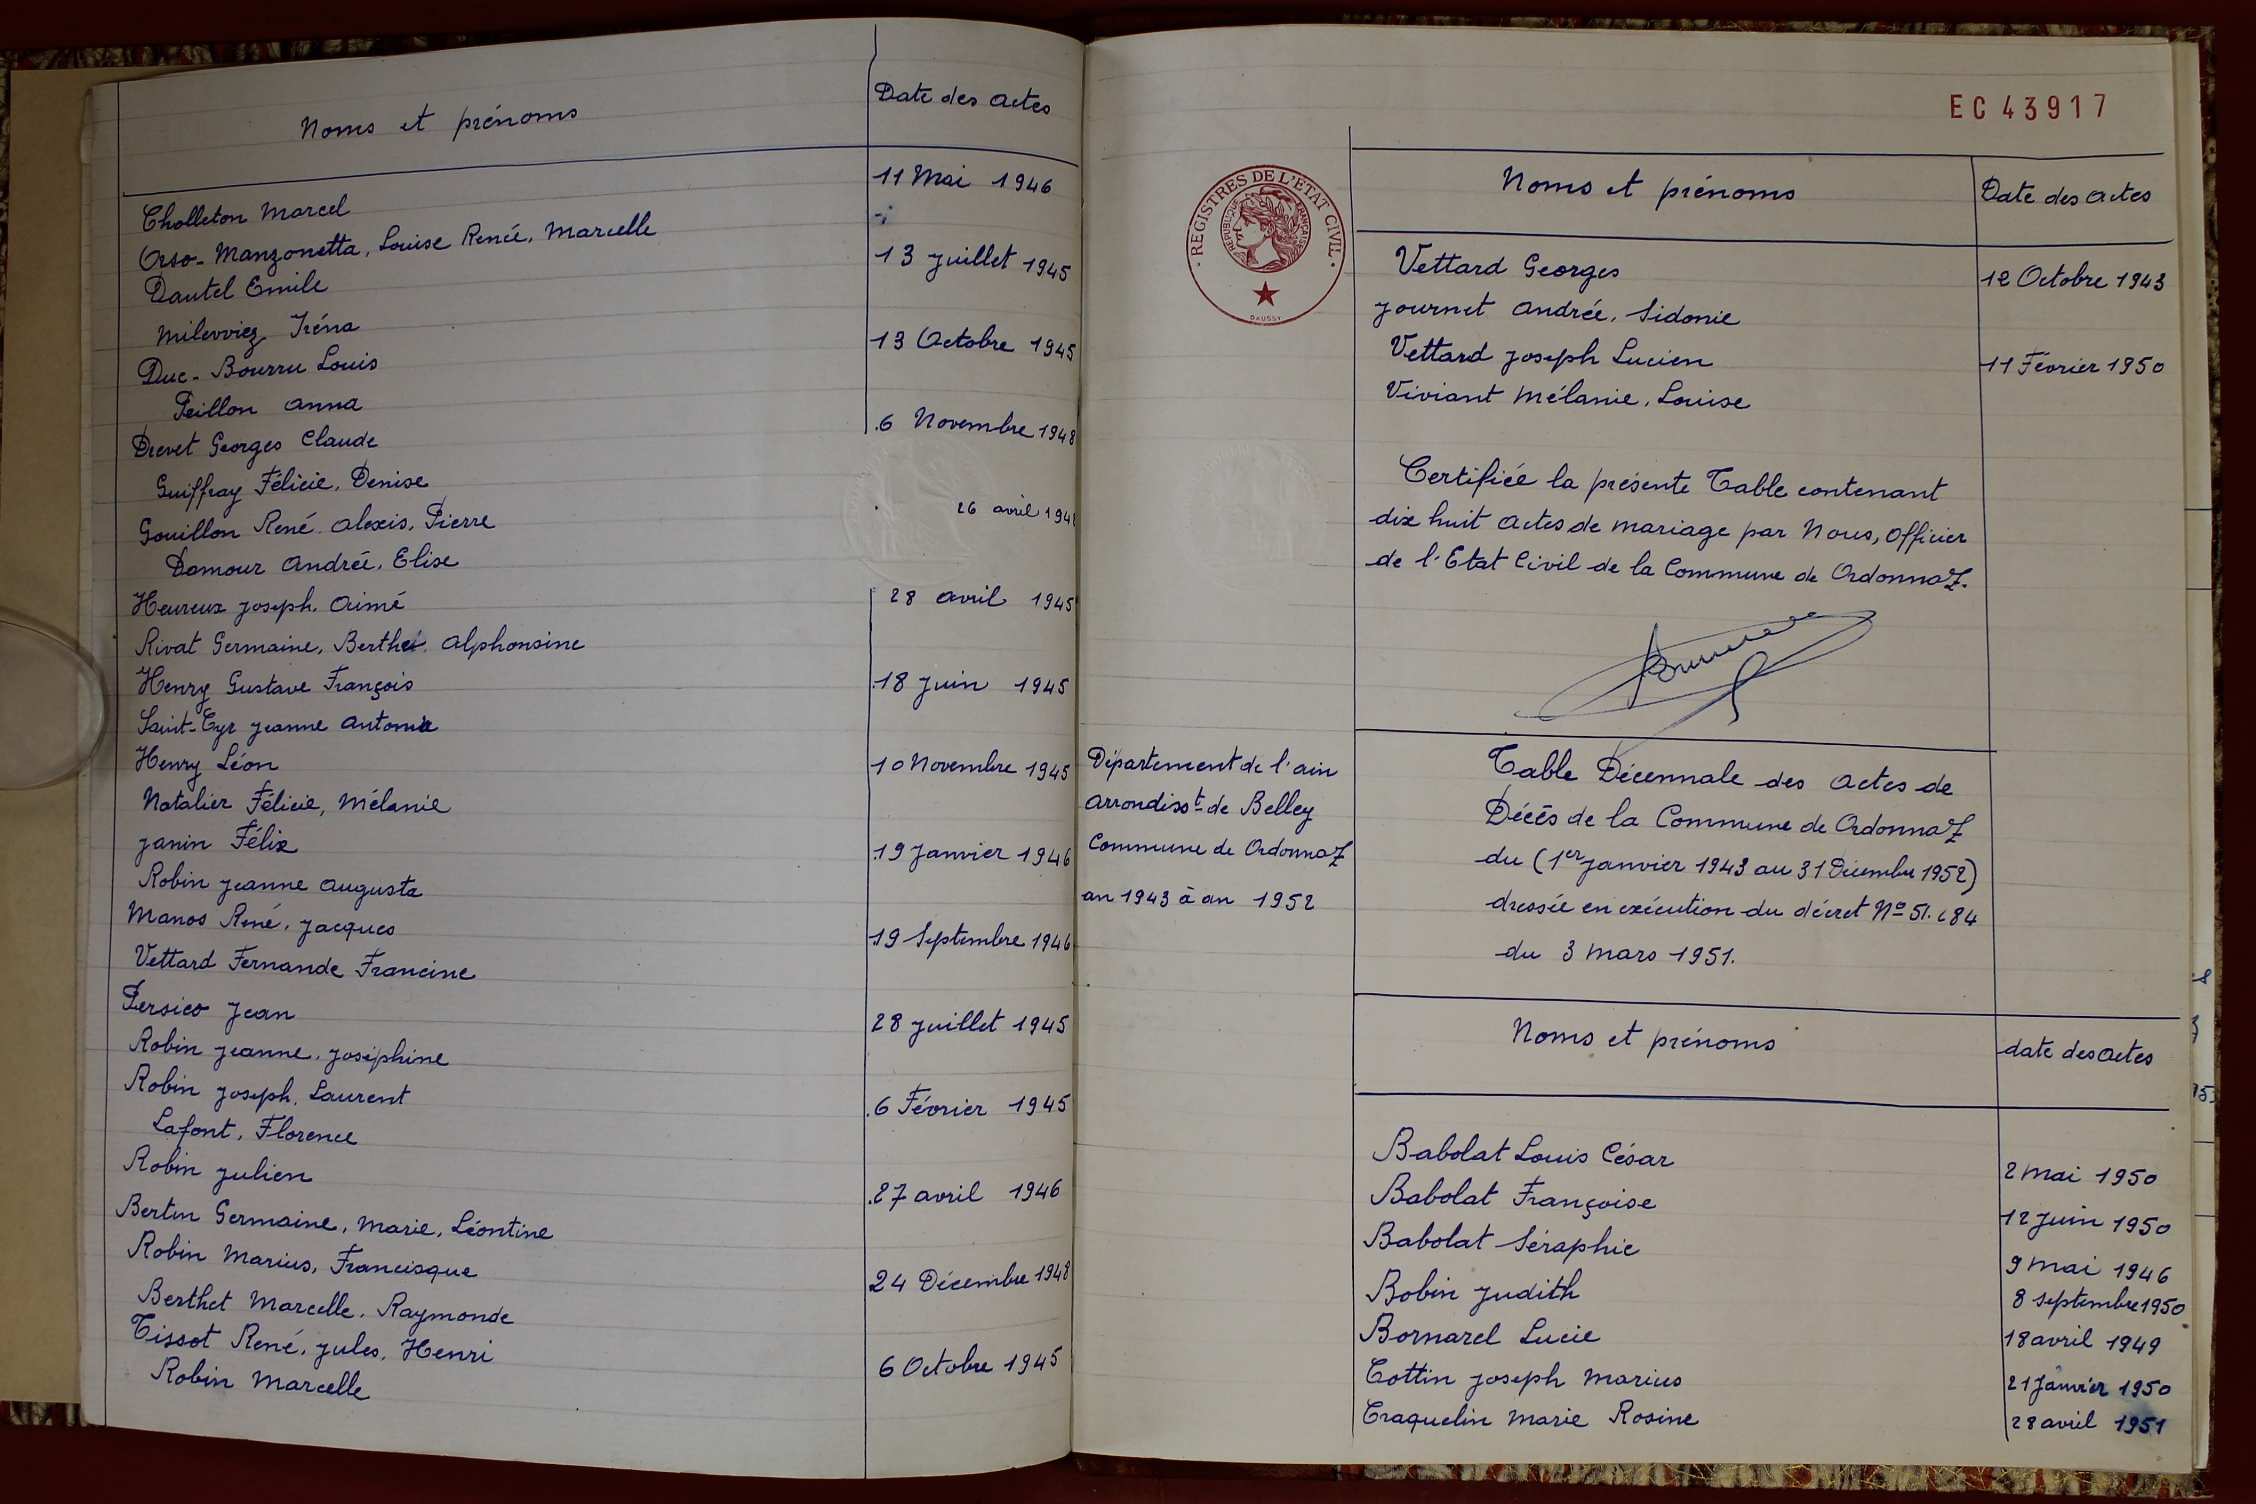 Noms et prénoms
Date des actes
Cholleton Marcel
11 Mai 1946
Orso-Manzonetta, Louise Renée, Marcelle
Dautel Emile
13 juillet 1945
Milewiez Iréna
Duc-Bourru Louis
13 Octobre 1945
Peillon Anna
Drevet Georges Claude
6 Novembre 1948
Guiffray Félicie, Denise
Gouillon René Alexis, Pierre
26 avril 194
Damour Andrée, Elise
Heureux Joseph, Aimé
28 avril 1945
Rivat Germaine, Berthe, Alphonsine
Henry Gustave François
18 Juin 1945
Saint-Cyr Jeanne Antonia
Henry Léon
10 Novembre 1945
Natalier Félicie, Mélanie
Janin Félix
19 Janvier 1946
Robin Jeanne Augusta
Manos René, Jacques
19 Septembre 1946
Vettard Fernande Francine
Persico Jean
28 juillet 1945
Robin Jeanne, Joséphine
Robin Joseph, Laurent
6 Février 1945
Lafont, Florence
Robin Julien
27 avril 1946
Bertin Germaine, Marie, Léontine
Robin Marius, Francisque
24 Décembre 1948
Berthet Marcelle, Raymonde
Tissot René, Jules, Henri
6 Octobre 1945
Robin Marcelle
EC 43917
· REGISTRES DE L'ETAT CIVIL ·
REPUBLIQUE FRANÇAISE
DAUSSY
Noms et prénoms
Date des actes
Vettard Georges
12 Octobre 1943
Journet Andrée, Sidonie
Vettard Joseph Lucien
11 Février 1950
Viviant Mélanie, Louise
Certifiée la présente Table contenant
dix huit actes de mariage par Nous, Officier
de l'Etat Civil de la Commune de Ordonnaz.
Département de l'ain
arrondisst de Belley
Commune de Ordonnaz
an 1943 à an 1952
Table Décennale des actes de
Décès de la Commune de Ordonnaz
du (1er janvier 1943 au 31 Décembre 1952)
dressée en exécution du décret No 51.284
du 3 mars 1951.
Noms et prénoms
date des actes
Babolat Louis César
2 mai 1950
Babolat Françoise
12 juin 1950
Babolat Séraphie
9 mai 1946
Bobin Judith
8 septembre 1950
Bornarel Lucie
18 avril 1949
Cottin Joseph Marius
21 Janvier 1950
Craquelin Marie Rosine
28 avril 1951